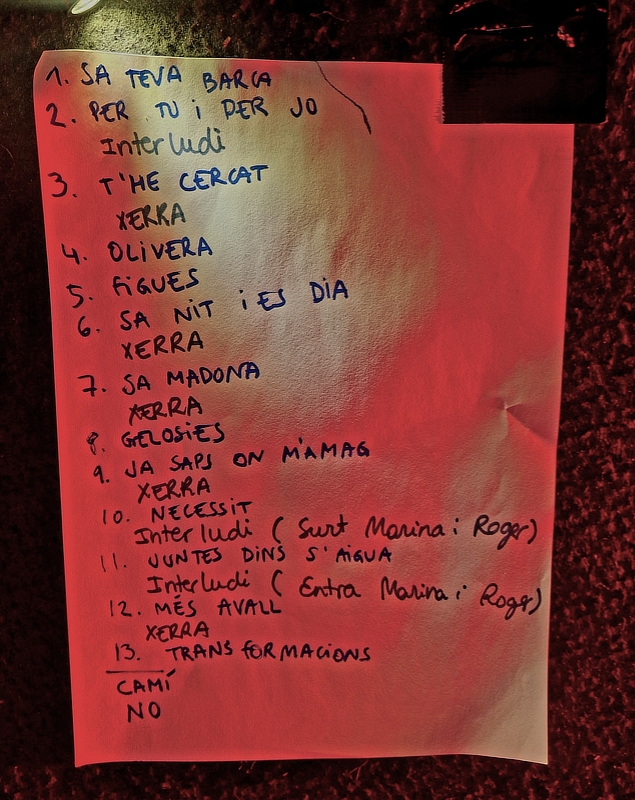 1. SA TEVA BARCA
2. PER TU i PER JO
Interludi
3. T'HE CERCAT
XERRA
4. OLIVERA
5. FIGUES
6. SA NIT i ES DIA
XERRA
7. SA MADONA
XERRA
8. GELOSIES
9. JA SAPS ON M'AMAG
XERRA
10. NECESSIT
Interludi ( Surt Marina i Roger)
11. JUNTES DINS S'AIGUA
Interludi ( Entra Marina i Roger)
12. MÉS AVALL
XERRA
13. TRANSFORMACIONS
CAMÍ
NO